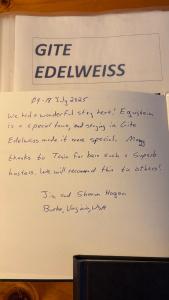 GITE
EDELWEISS
09-18 July 2025
We had a wonderful stay here! Eguisheim
is a special town, and staying in Gite
Edelweiss made it more special. Many
thanks to Tania for being such a superb
hostess. We will recommend this to others!
Jim and Sharon Hogan
Burke, Virginia, USA